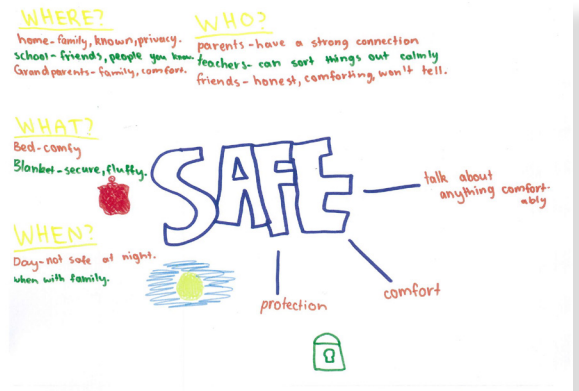 WHERE?
home-family, known, privacy.
school-friends, people you know.
Grandparents-family, comfort.
WHO?
parents-have a strong connection
teachers-can sort things out calmly
friends-honest, comforting, won't tell.
WHAT?
Bed-comfy
Blanket-secure, fluffy.
SAFE
talk about
anything comfort-
ably
WHEN?
Day-not safe at night.
when with family.
protection
comfort